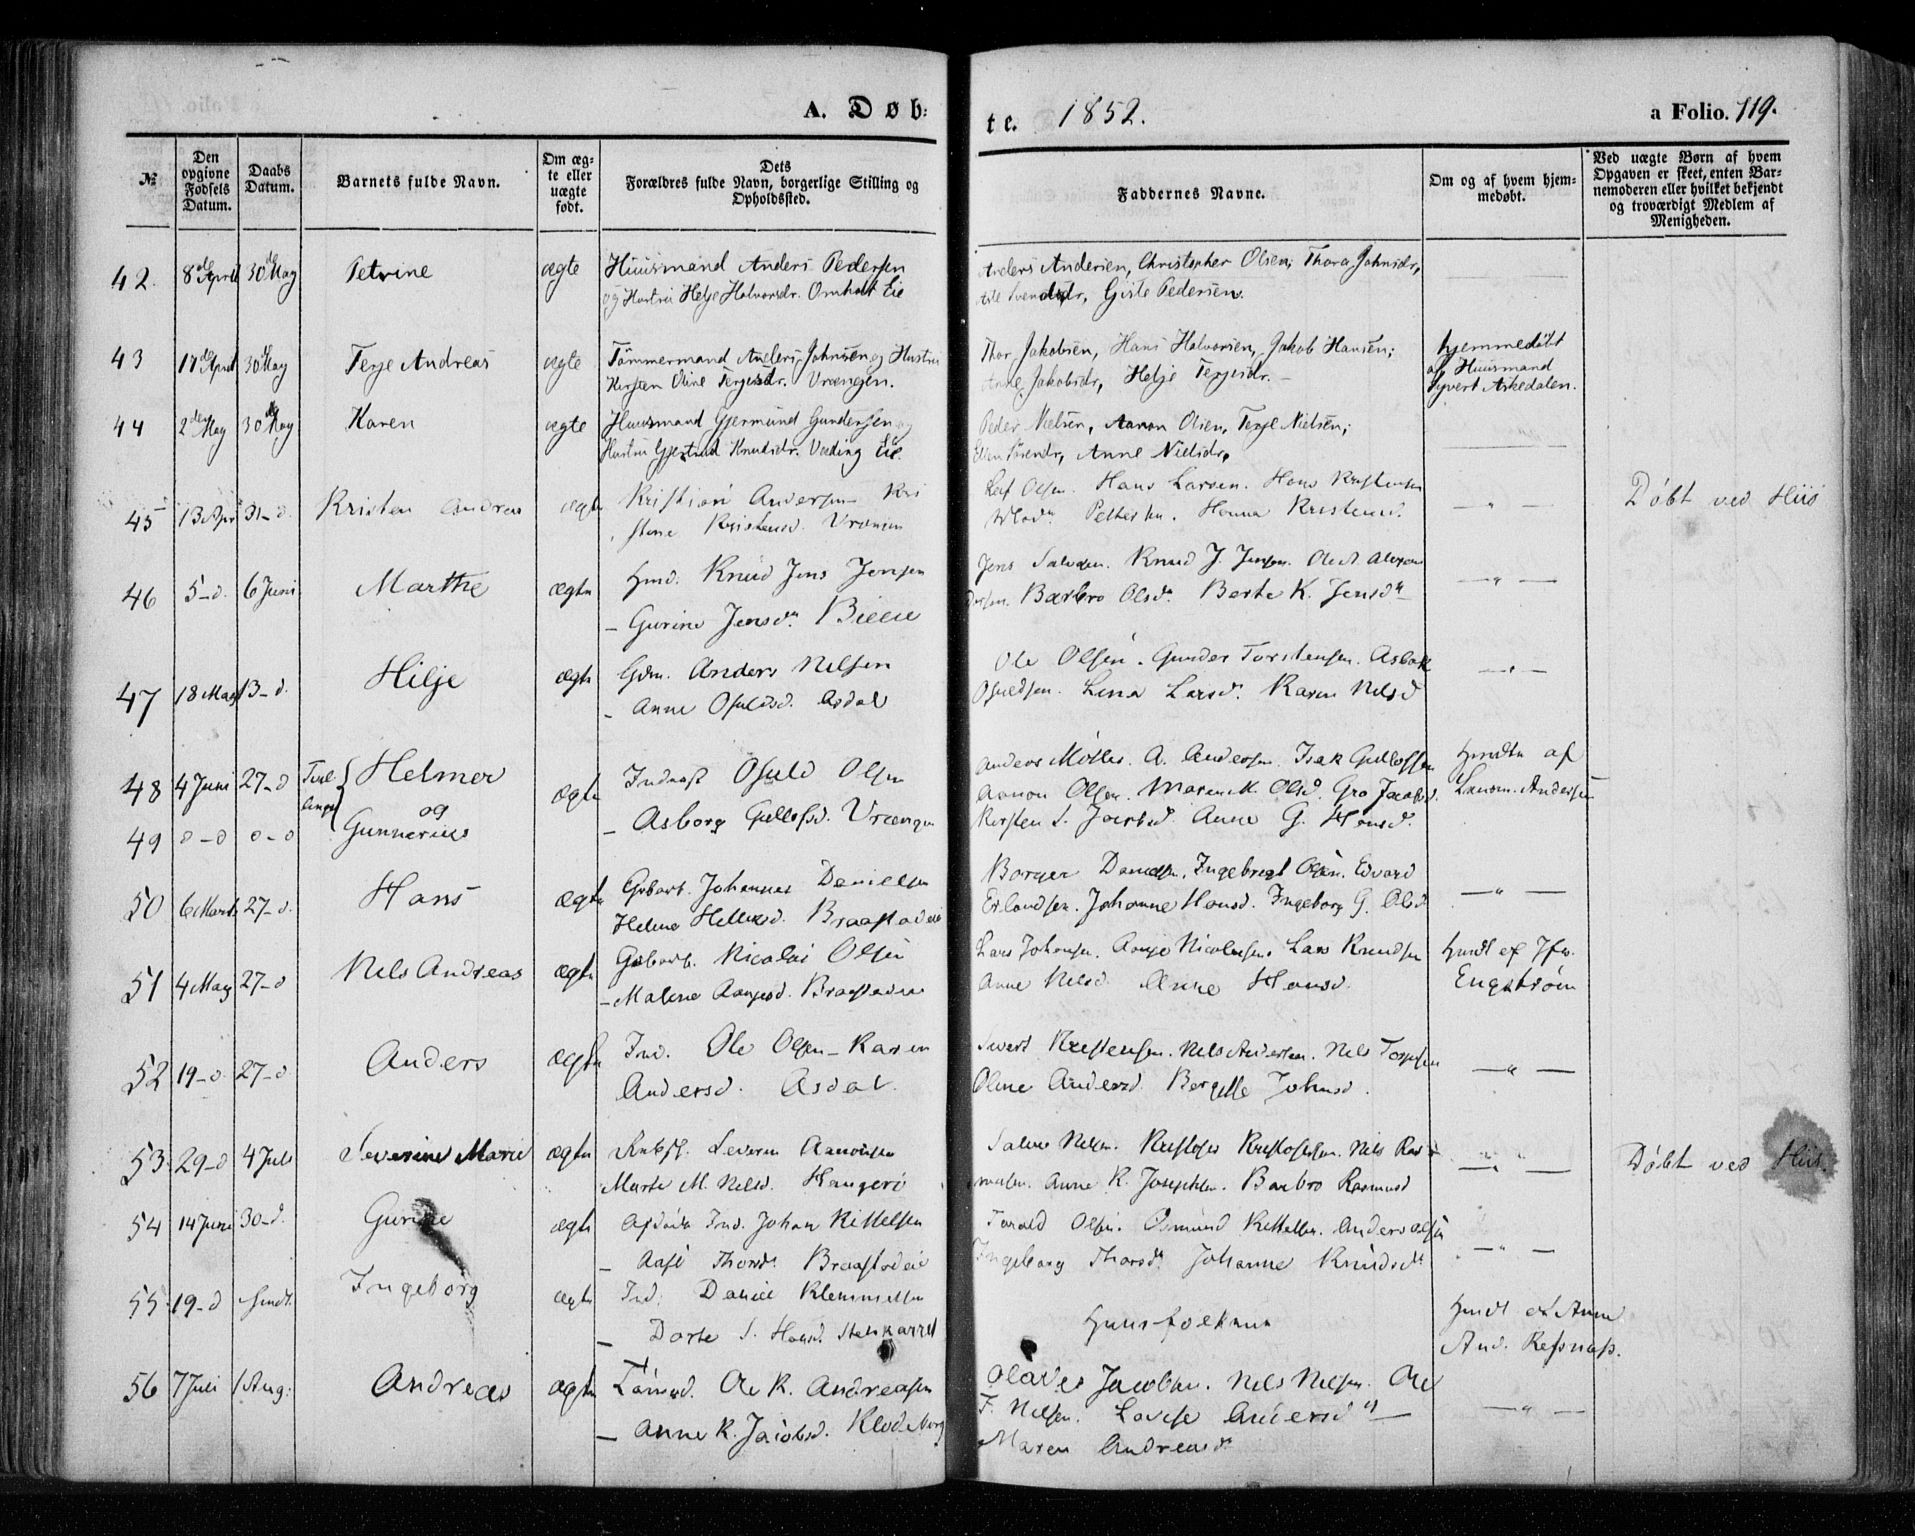 A. Døb:
te. 1852.
a Folio. 119.
№
Den opgivne Fødsels Datum.
Daabs Datum.
Barnets fulde Navn.
Om ægte eller uægte født.
Dets Forældres fulde Navn, borgerlige Stilling og Opholdssted.
Faddernes Navne.
Om og af hvem hjemmedøbt.
Ved uægte Børn af hvem Opgaven er skeet, enten Barnemoderen eller hvilket bekjendt og troværdigt Medlem af Menigheden.
42. 8de April 30de May Petrine ægte Huusmand Anders Pedersen
og Hustru Helje Halvorsdr. Omholt Eie
Anders Andersen, Christopher Olsen, Thora Johnsdr,
Svendsdr, Giste Pedersen.
43 17de April 30d May Terje Andreas ægte Tømmermand Anders Johnsen og Hustru
Kirsten Oline Terjesdr. Vrængen.
Thor Jakobsen, Hans Halvorsen, Jakob Hansen;
Anne Jakobsdr, Helje Terjesdr.
hjemmedøbt
af Huusmand
Syvert Askedalen.
44 2den May 30de May Karen ægte Huusmand Gjermund Gundersen og
Hustru Gjertrud Knudsdr. Vading Eie.
Peder Nielsen, Aanon Olsen, Terje Nielsen;
Ellen Sørensdr, Anne Nielsdr.
45 13 Apr 31-d. Kristen Andreas ægte Kristian Andersen Kri
stene Kristensd. Vrængen
Leif Olsen. Hans Larsen. Hans Kristensen
Petters. Hanna Kristensd.
—„—
Døbt ved Hiis
46 5-d. 6 Juni Marthe ægte Hmd. Knud Jens Jensen
– Gurine Jensdr. Bieeie
Jens Salvesen. Knud J. Jensen. Ole A. Ander
sen. Barbro Olsdr. Berte K. Jensdr
—„—
47 18 May 13-d. Hilje ægte Gdm. Anders Nilsen
– Anne Osuldsd. Asdal
Ole Olsen. Gunder Torstensen. Aslak
Osuldsen. Lena Larsd. Karen Nelsd
—„—
48 4 Juni 27-d Tvil
linger Helmer
og
ægte Indrst Osuld Olsen
– Asborg Gullofsd. Vrængen
49 d-d d-d Gunnerius
Anders Møller. A. Andersen. Isak Gullofsen
Aanon Olsen. Maren K. Olsd. Gro Jacobsd.
Kirsten S. Jacobsd. Anne G. Hansd.
Hmdtn af
Andersen
50 6 Marts 27-d. Hans ægte Gsbarb. Johannes Danielsen
Helene Helliesd. Braastadeie
Borger Danielsen. Ingebregt Olsen. Edvard
Erlandsen. Johanne Hansd. Ingeborg G. Olsd
—„—
51 4 May 27-d Nils Andreas ægte Gsbarb. Nicolai Olsen
– Malene Aanesd. Braastadeie
Lars Johansen. Aanje Nicolaisen. Lars Knudsen
Anne Nelsd. Anne Hansd.
Hmdt af Jfr.
Engstrøm
52 19-d. 27-d. Anders ægte Ind. Ole Olsen – Karen
Andersd. Asdal.
Sivert Kristensen. Nils Andersen. Nils Terjesen
Oline Andersd Bergitte Johnsd.
—„—
53 29-d 4 Juli Severine Marie ægte Severin Aanonsen
Marte M. Nelsd. Haugerø
Salve Nilsen. Kristofer Kristofersen. Nils Ras
musen. Anne K. Josephsen. Barbro Rasmusd
—„—
Døbt ved Hiis.
54 14 Juni 30-d. Gurine ægte Afdøde Ind. Johan Kittelsen
– Aase Thorsdr. Braastadeie
Torald Olsen. Osmund Kittelsen. Anders Olsen
Ingeborg Thorsdr. Johanne Knudsdr
—„—
55 19-d Hmdt. Ingeborg ægte Ind. Daniel Klemmetsen
– Dorte S. Hansd.
Huusfolkene
Hmdt af Anne
And. Resnæss.
56 7 Juli 1 Aug: Andreas ægte Tømmd. Ole K. Andreasen
– Anne K. Jacobsd. Klod.Marg
Olaves Jacobsen. Nels Nelsen. Ole
F. Nelsen. Lovise Andersdr –
Maren Andreasdr
—„—